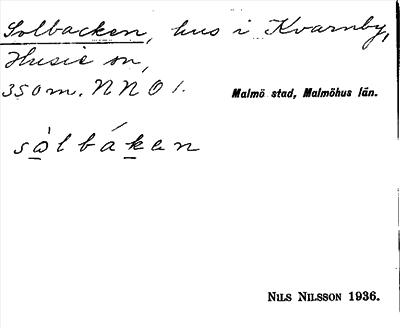 Solbacken, hus i Kvarnby,
Husie sn,
350 m. NNO 1.
Malmö stad, Malmöhus län.
sòlbáken
NILS NILSSON 1936.